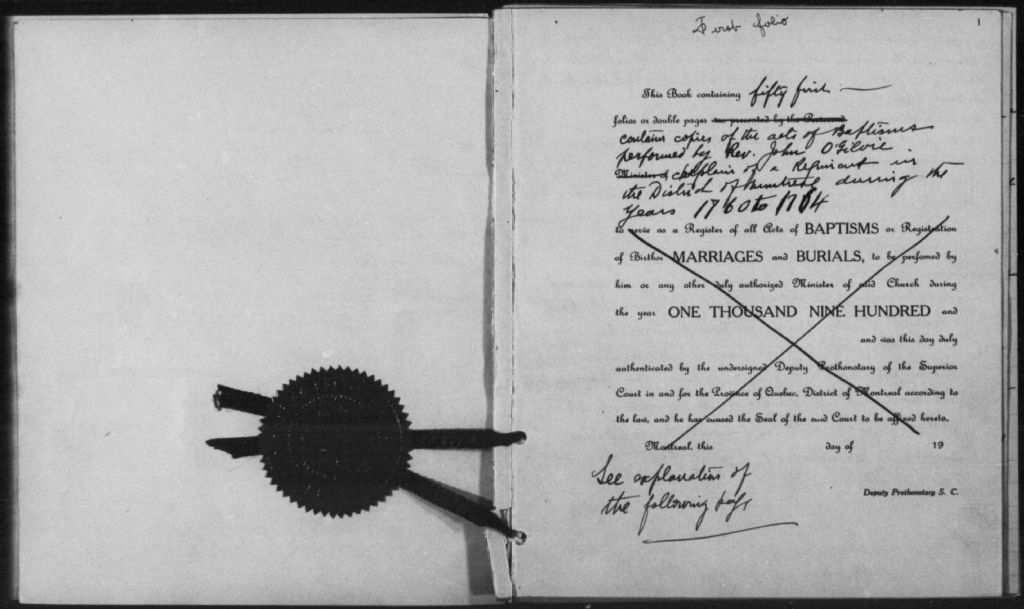 First folio
1
This Book containing fifty first —
folios or double pages was presented by the Reverend
contains copies of the acts of Baptisms
performed by Rev. John O'Gilvie
Minister of chaplain of a Regiment in
the District of Montreal during the
Years 1760 to 1764
to serve as a Register of all Acts of BAPTISMS or Registration
of Births MARRIAGES and BURIALS, to be perfomed by
him or any other duly authorized Minister of said Church during
the year ONE THOUSAND NINE HUNDRED and
and was this day duly
authenticated by the undersigned Deputy Prothonotary of the Superior
Court in and for the Province of Quebec, District of Montreal according to
the law, and he has caused the Seal of the said Court to be affixed hereto.
Montreal, this day of 19
Deputy Prothonotary S. C.
See explanation of
the following page